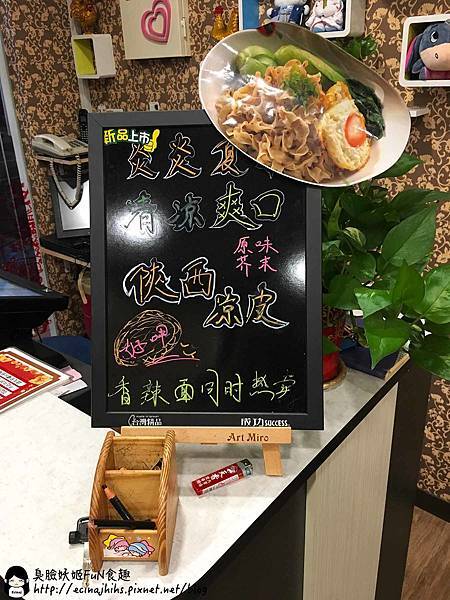 新品上市!
炎炎夏
清凉爽口
原味
芥末
陝西
凉皮
好呷
香辣面同时热卖
台灣精品
成功 SUCCESS
Art Miro
臭臉妖姬FuN食趣
http://ecinajhihs.pixnet.net/blog